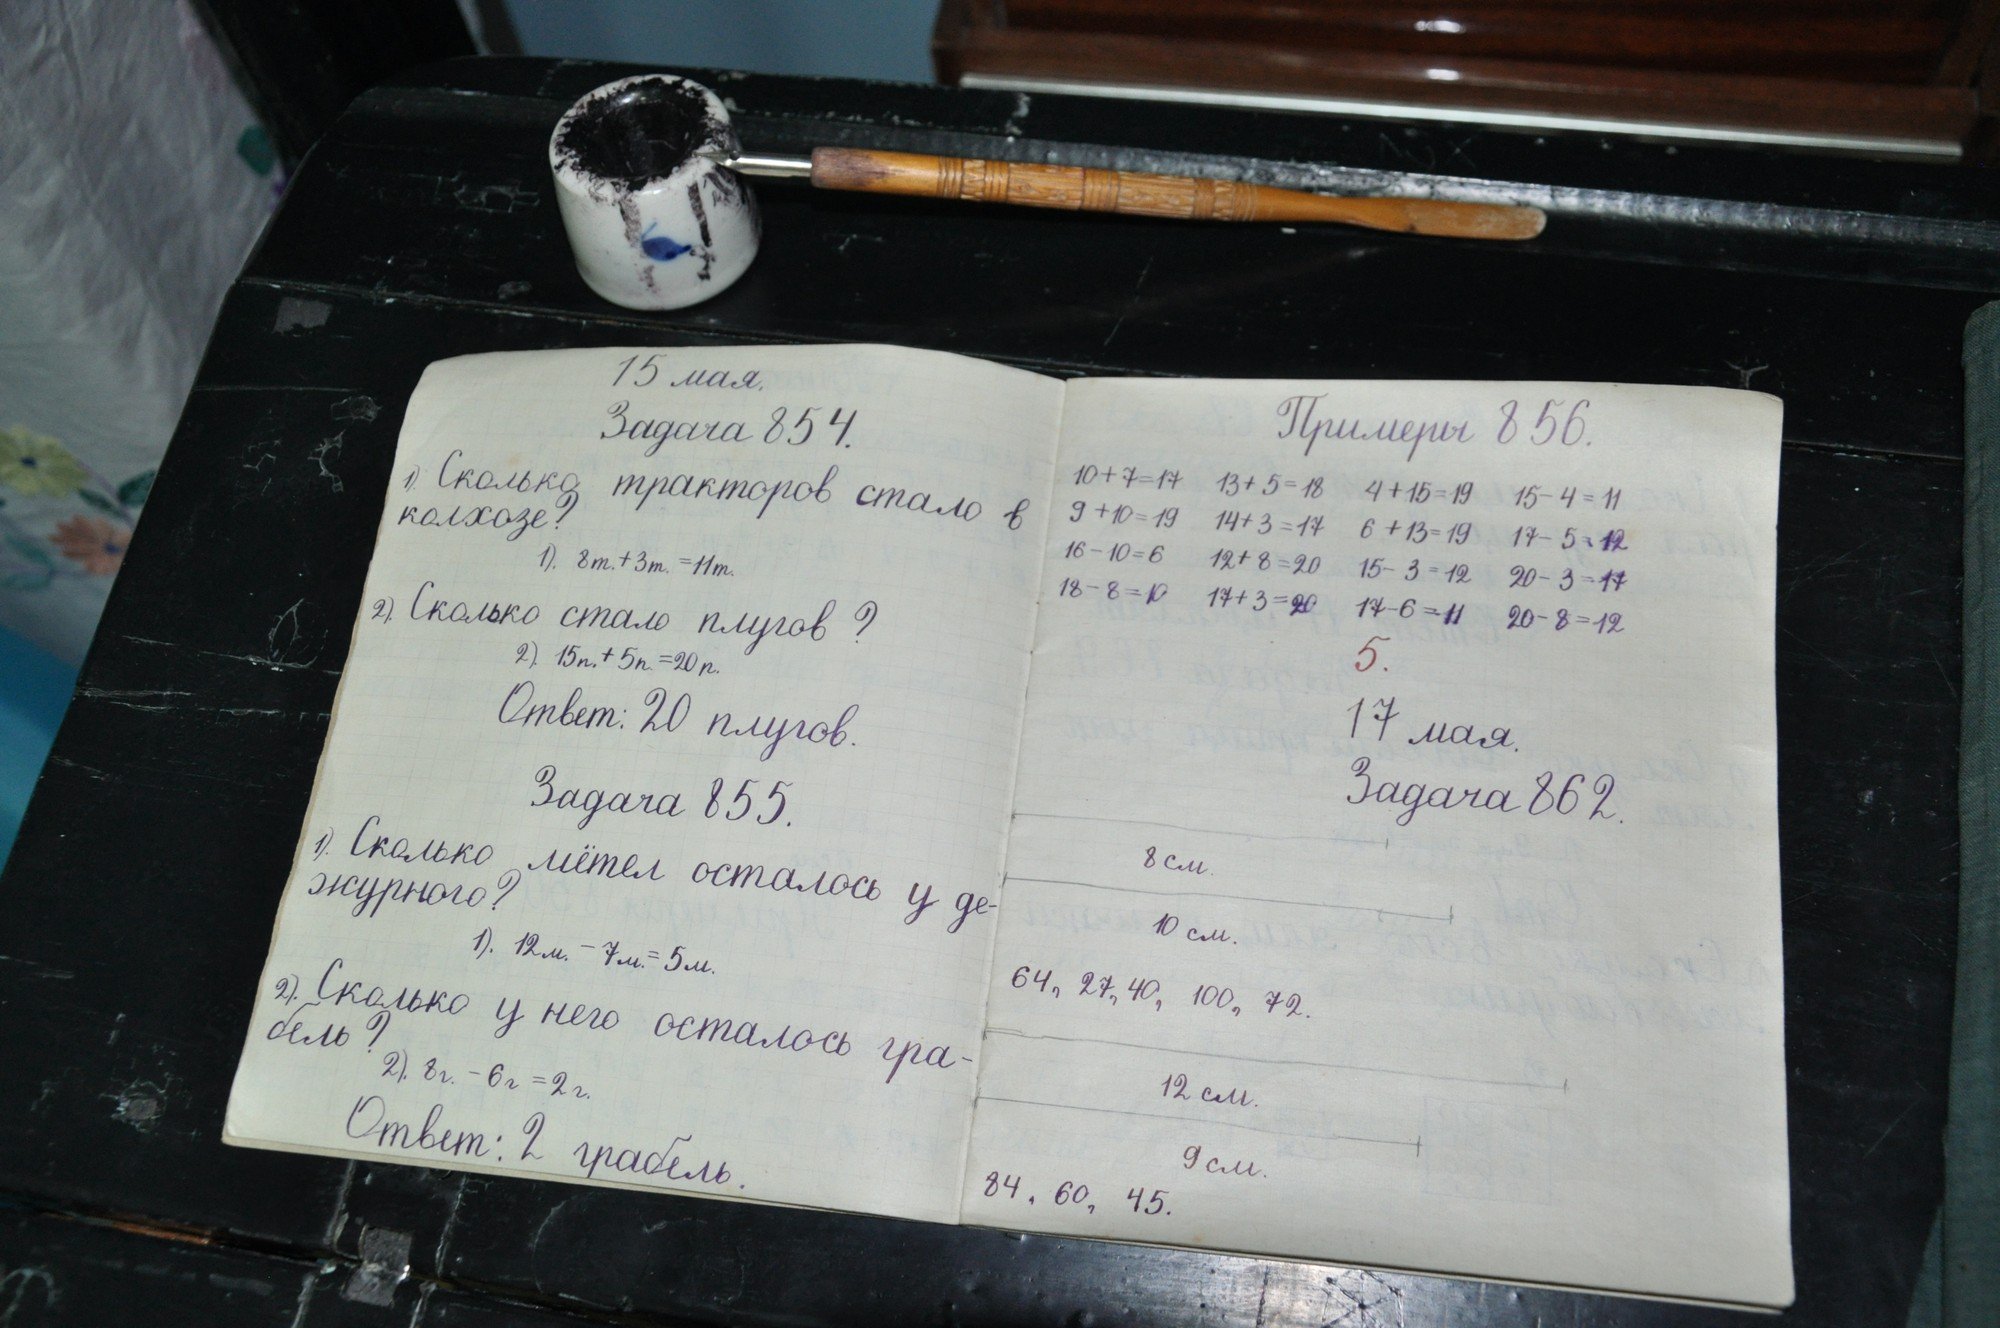 15 мая.
Задача 854.
1). Сколько тракторов стало в
колхозе?
1). 8т. + 3т. = 11т.
2). Сколько стало плугов?
2). 15п. + 5п. = 20п.
Ответ: 20 плугов.
Задача 855.
1). Сколько мётел осталось у де-
журного?
1). 12м. - 7м. = 5м.
2). Сколько у него осталось гра-
бель?
2). 8г. - 6г = 2г.
Ответ: 2 грабель.
Примеры 856.
10+7=17 13+5=18 4+15=19 15-4=11
9+10=19 14+3=17 6+13=19 17-5=12
16-10=6 12+8=20 15-3=12 20-3=17
18-8=10 17+3=20 17-6=11 20-8=12
5.
17 мая.
Задача 862.
8 см.
10 см.
64, 27, 40, 100, 72.
12 см.
9 см.
84, 60, 45.